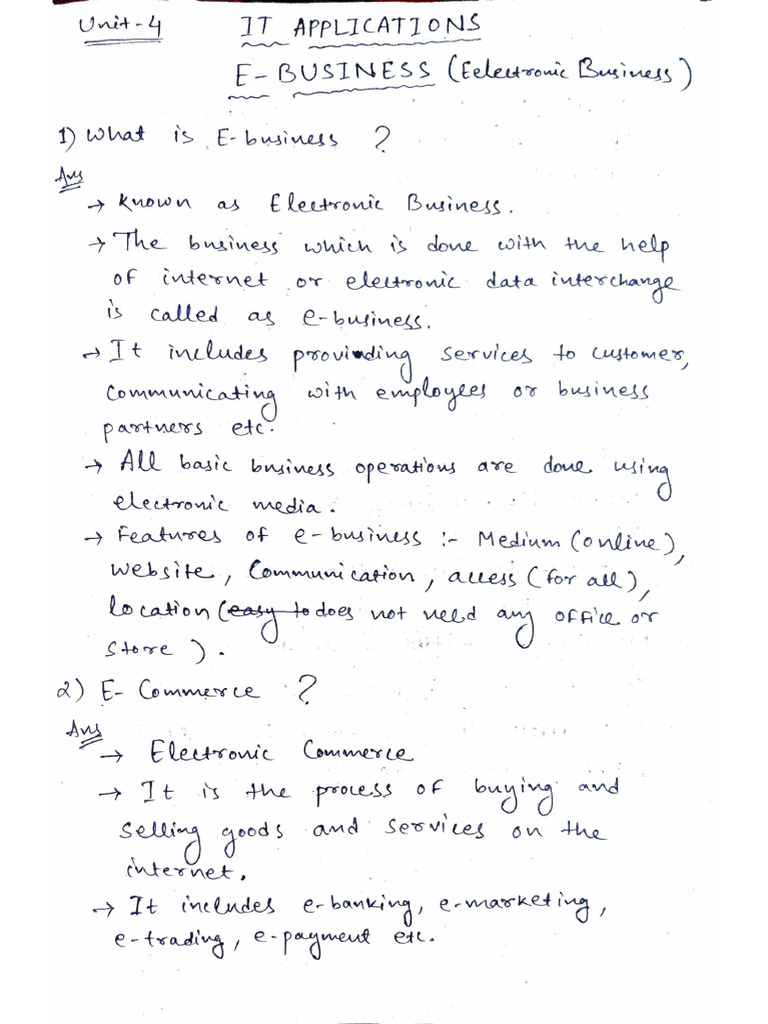 Unit-4 IT APPLICATIONS
E-BUSINESS (Eelectronic Business)
1) What is E-business ?
Ans
→ Known as Electronic Business.
→ The business which is done with the help
of internet or electronic data interchange
is called as e-business.
→ It includes provinding services to customer,
communicating with employees or business
partners etc.
→ All basic business operations are done using
electronic media.
→ Features of e-business :- Medium (online),
website, Communication, access (for all),
location (easy to does not need any office or
store ).
2) E- Commerce ?
Ans
→ Electronic Commerce
→ It is the process of buying and
selling goods and services on the
internet.
→ It includes e-banking, e-marketing,
e-trading, e-payment etc.